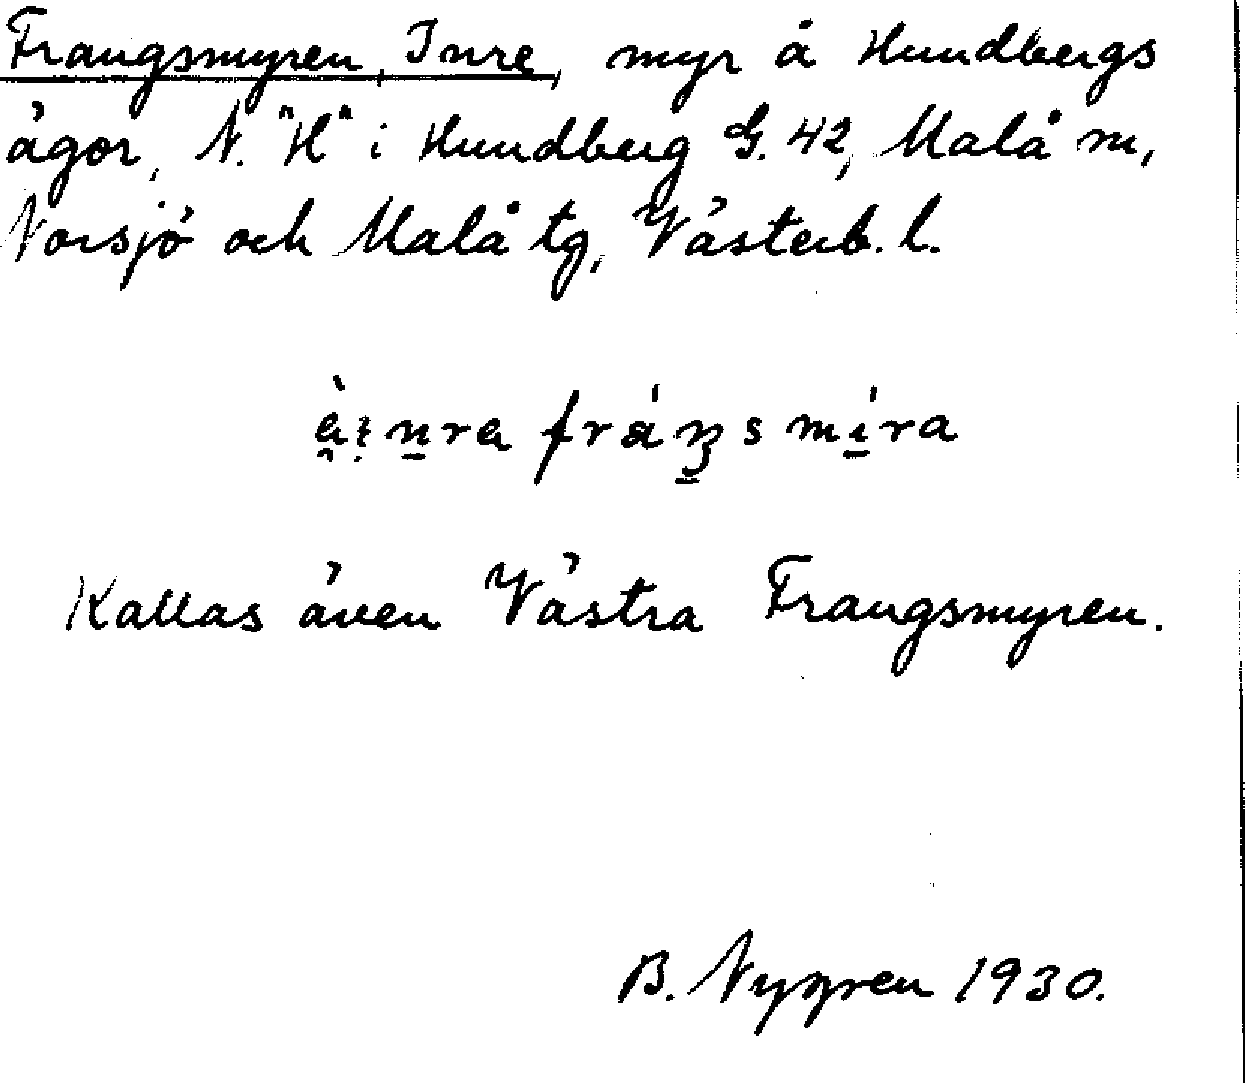 Frangsmyren, Inre, myr å Hundbergs
ägor, N. "H" i Hundberg G. 42, Malå sn,
Norsjö och Malå tg, Västerb. l.
Kallas även Västra Frangsmyren.
B. Nygren 1930.